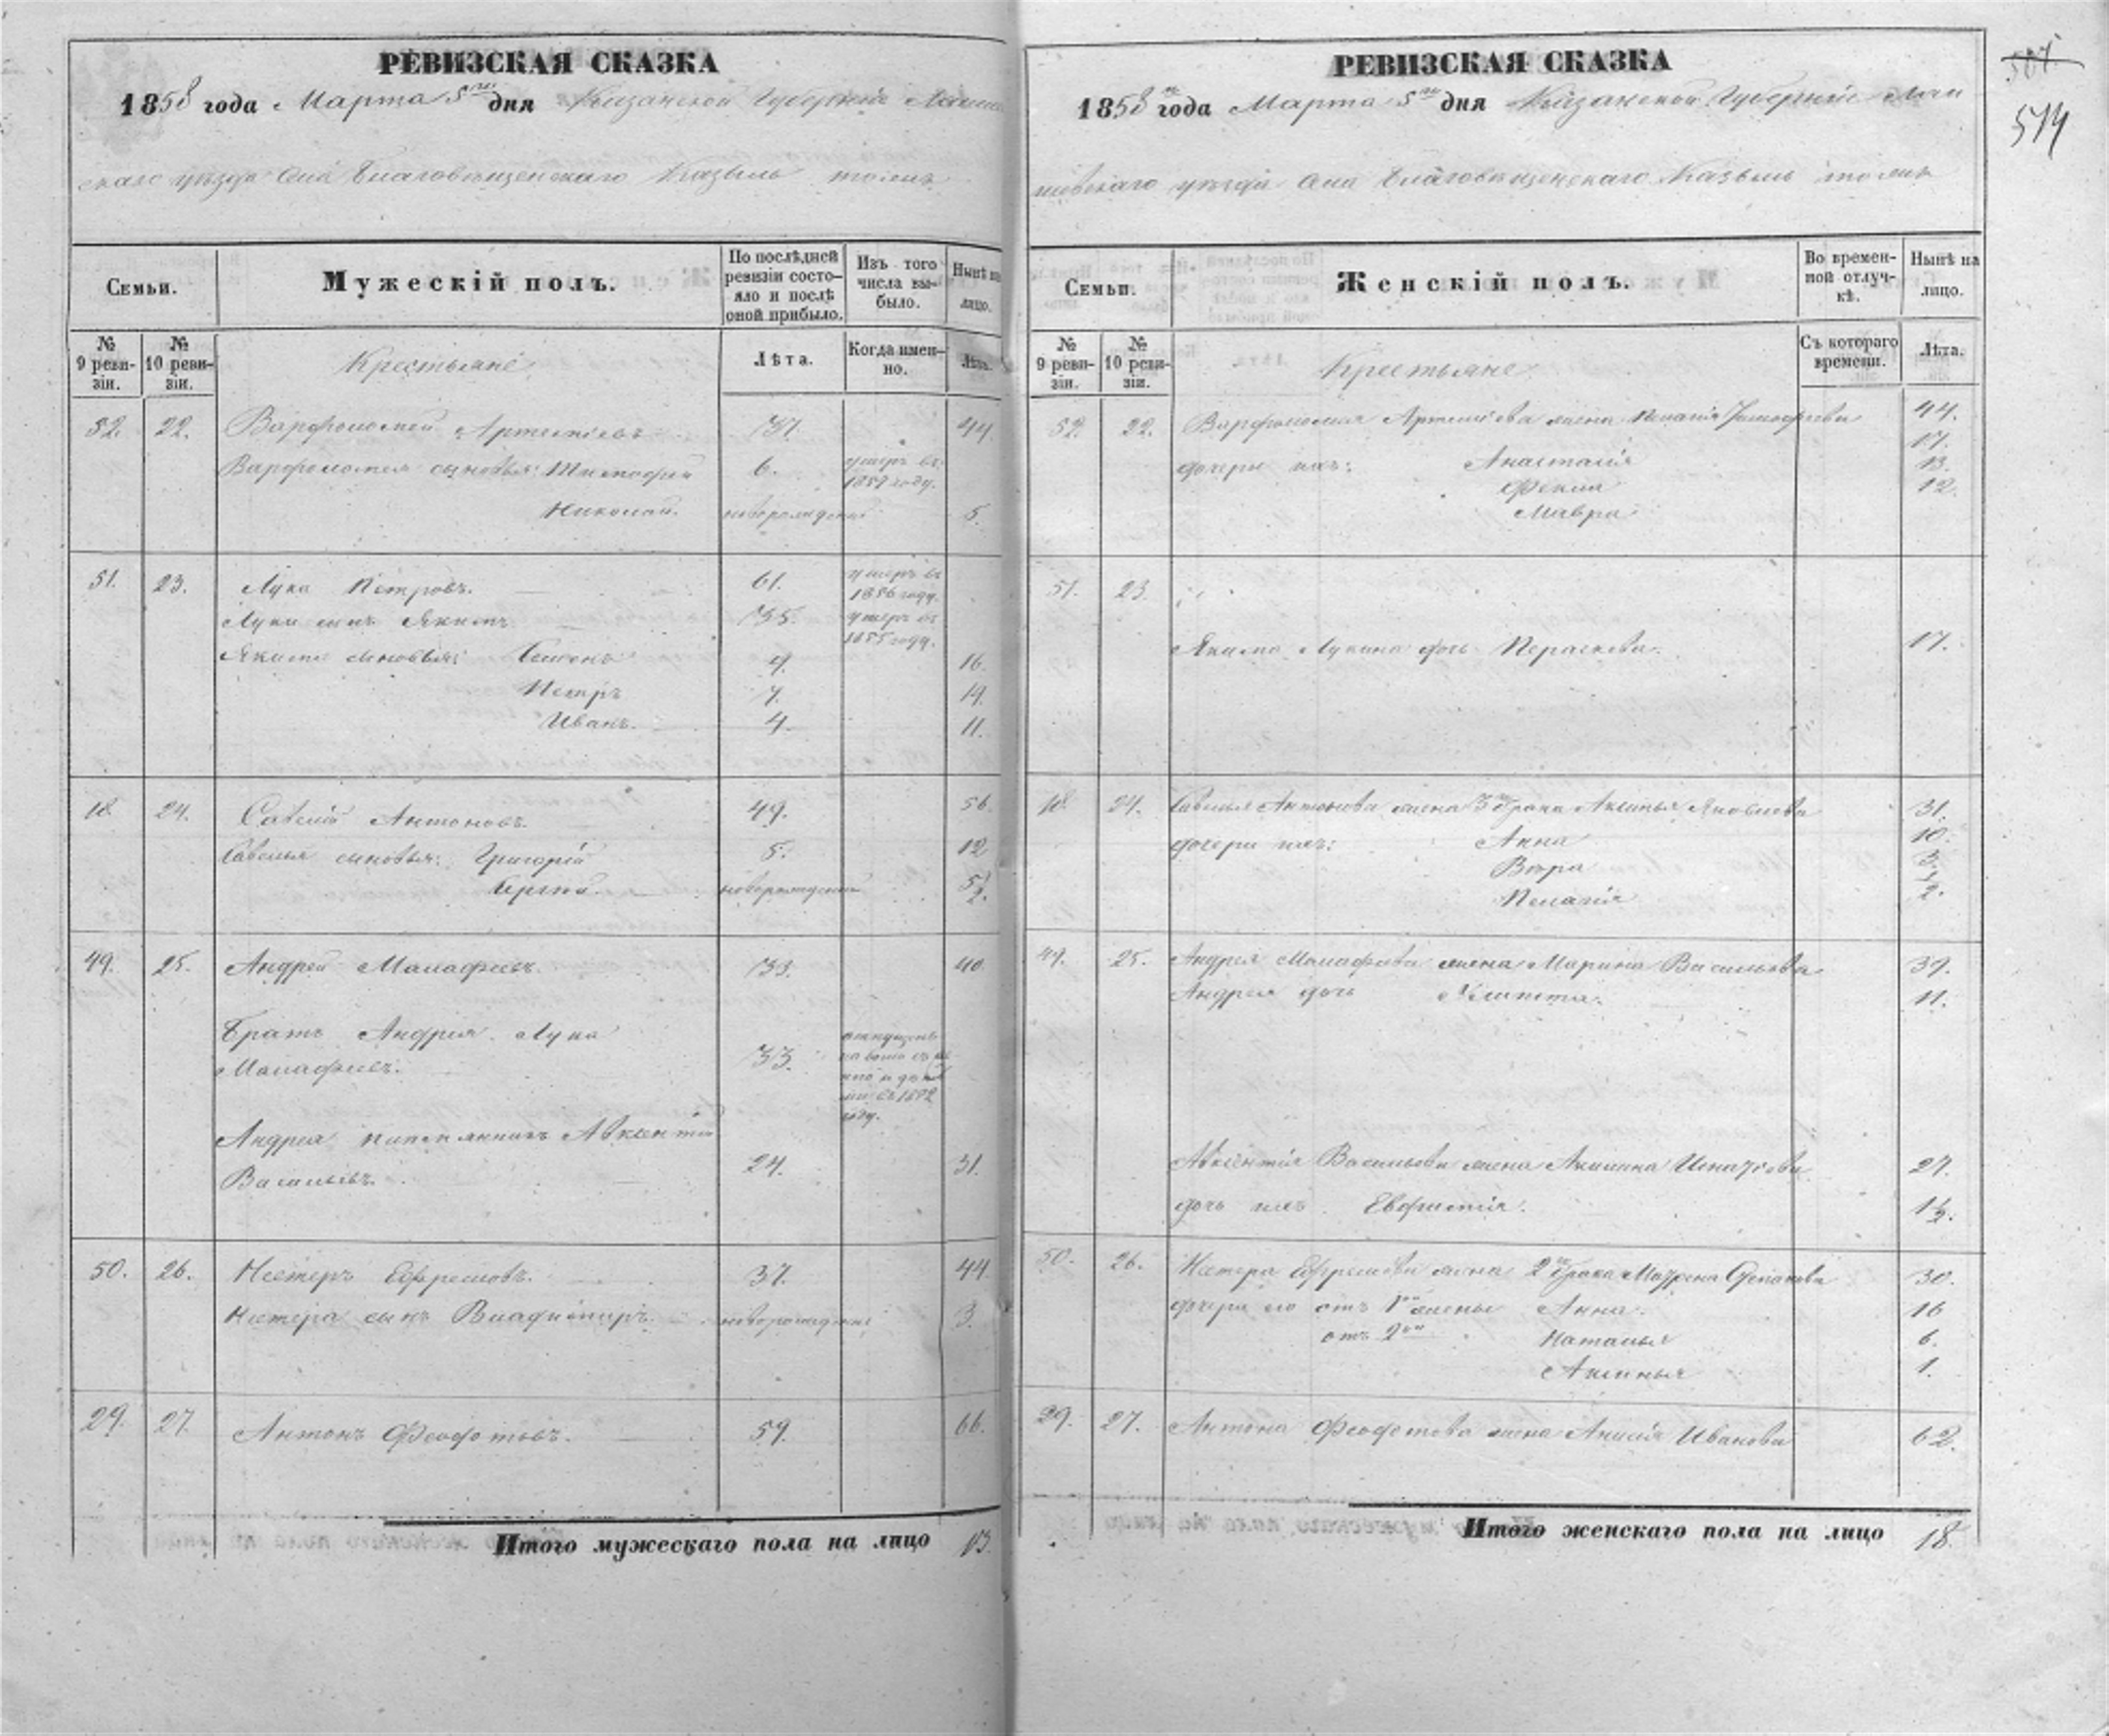 РЕВИЗСКАЯ СКАЗКА
1858 года Марта 5го дня Казанской Губерніи Лаише
скаго уѣзда села Благовѣщенскаго Казыль тожъ
Семьи.
Мужескій полъ.
По послѣдней ревизіи состо-
яло и послѣ
оной прибыло.
Изъ того
числа вы-
было.
Нынѣ на
лицо.
№
9 реви-
зіи.
№
10 реви-
зіи.
Крестьяне
Лѣта.
Когда имен-
но.
Лѣта.
52. 22. Варфоломей Артемьевъ 37. 44
Варфоломея сыновья: Тимофей 6. умеръ въ
185 году.
Николай. новорожденный 5.
51. 23. Лука Петровъ. 61. умеръ въ
1856 году.
Луки сынъ Якимъ 35. умеръ въ
1855 году.
Якима сыновья: Семенъ 9. 16.
Петръ 7. 14.
Иванъ. 4. 11.
18. 24. Савелій Антоновъ. 49. 56.
Савелья сыновья: Григорій 5. 12
Сергѣй. новорожденный 5½.
49. 25. Андрей Малафѣевъ. 33. 40
Братъ Андрея Лука
Малафѣевъ. 33. отпущенъ
на волю съ же
ною и дѣть
ми въ 1852
году.
Андрея племянникъ Авксентій
Васильевъ. 24. 31.
50. 26. Нестеръ Ефремовъ. 37. 44
Нестера сынъ Владиміръ новорожденный 3.
29. 27. Антонъ Феодотовъ. 59. 66.
Итого мужескаго пола на лицо 13.
РЕВИЗСКАЯ СКАЗКА
1858го года Марта 5го дня Казанской Губерніи Лаи
шевскаго уѣзда села Благовѣщенскаго Казыль тожъ
501
514
Семьи.
Женскій полъ.
Во времен-
ной отлуч-
кѣ.
Нынѣ на
лицо.
№
9 реви-
зіи.
№
10 реви-
зіи.
Крестьяне
Съ котораго
времени.
Лѣта.
52. 22. Варфоломея Артемьева жена Пелагія Тимофеева 44.
дочери ихъ: Анастасія 17.
Фекла 13.
Мавра 12.
51. 23.
Якима Лукина дочь Парасковья. 17.
18. 24. Савелья Антонова жена 3го брака Аксинья Яковлева 31.
дочери ихъ: Анна 10.
Вѣра 3.
Пелагія ½.
49. 25. Андрея Малафѣева жена Марина Васильева 39.
Андрея дочь 11.
Авксентія Васильева жена Акилина Игнатьева 27.
дочь ихъ Евфимія. 1½.
50. 26. Нестера Ефремова жена 2го брака Матрена Степанова 30.
дочери его отъ 1ой жены Анна. 16
отъ 2ой Наталья 6.
Аксинья 1.
29. 27. Антона Феодотова жена Анисія Иванова 62.
Итого женскаго пола на лицо 18.